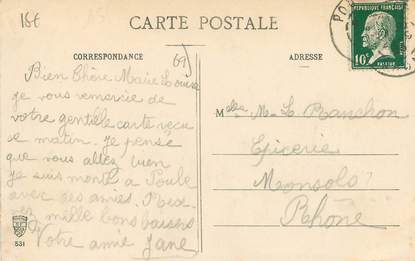 15€
CARTE POSTALE
CORRESPONDANCE
69
ADRESSE
RÉPUBLIQUE FRANÇAISE
10c
PASTEUR
PO
Bien chère Marie Louise
je vous remercie de
votre gentille carte reçue
ce matin. Je pense
que vous allez bien
je suis monté à Poule
avec des amies.
mille bons baisers
Votre amie Jane
Melle M. L. Planchon
Epicerie
Monsols
Rhône
531